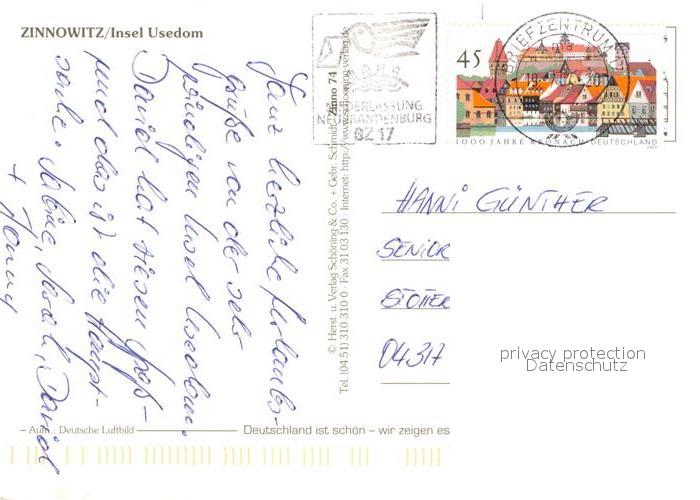 ZINNOWITZ/Insel Usedom
Ganz herzliche Urlaubs-
grüße von der sehr
windigen Insel Usedom.
David hat riesen Spaß
und das ist die Haupt-
sache. Sabine, Sarah, David
+ Hanny
© Herst. u. Verlag Schöning & Co. + Gebr. Schmidt Zinno 74 http://www.schoening-verlag.de
Tel. (04 51) 310 310 0 · Fax 31 03 130 · Internet:
NIEDERLASSUNG
NEUBRANDENBURG
BZ 17
BRIEFZENTRUM
45
1000 JAHRE KRONACH DEUTSCHLAND
HANNI GÜNTHER
SENIOR
STÖTTER
04317
privacy protection
Datenschutz
– Aufn.: Deutsche Luftbild
Deutschland ist schön – wir zeigen es